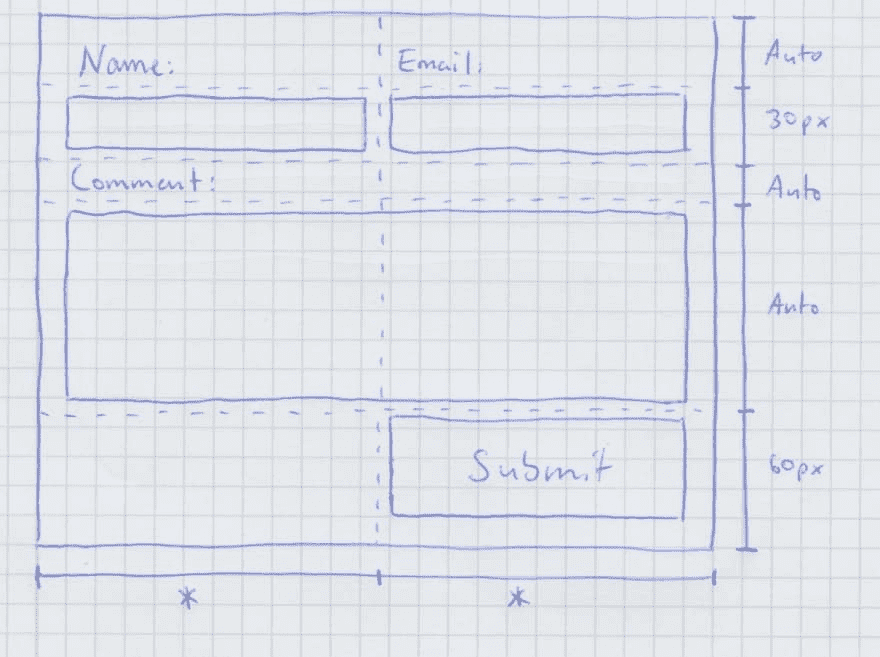 Name: Email: Auto
30px
Comment: Auto
Auto
Submit 60px
* *